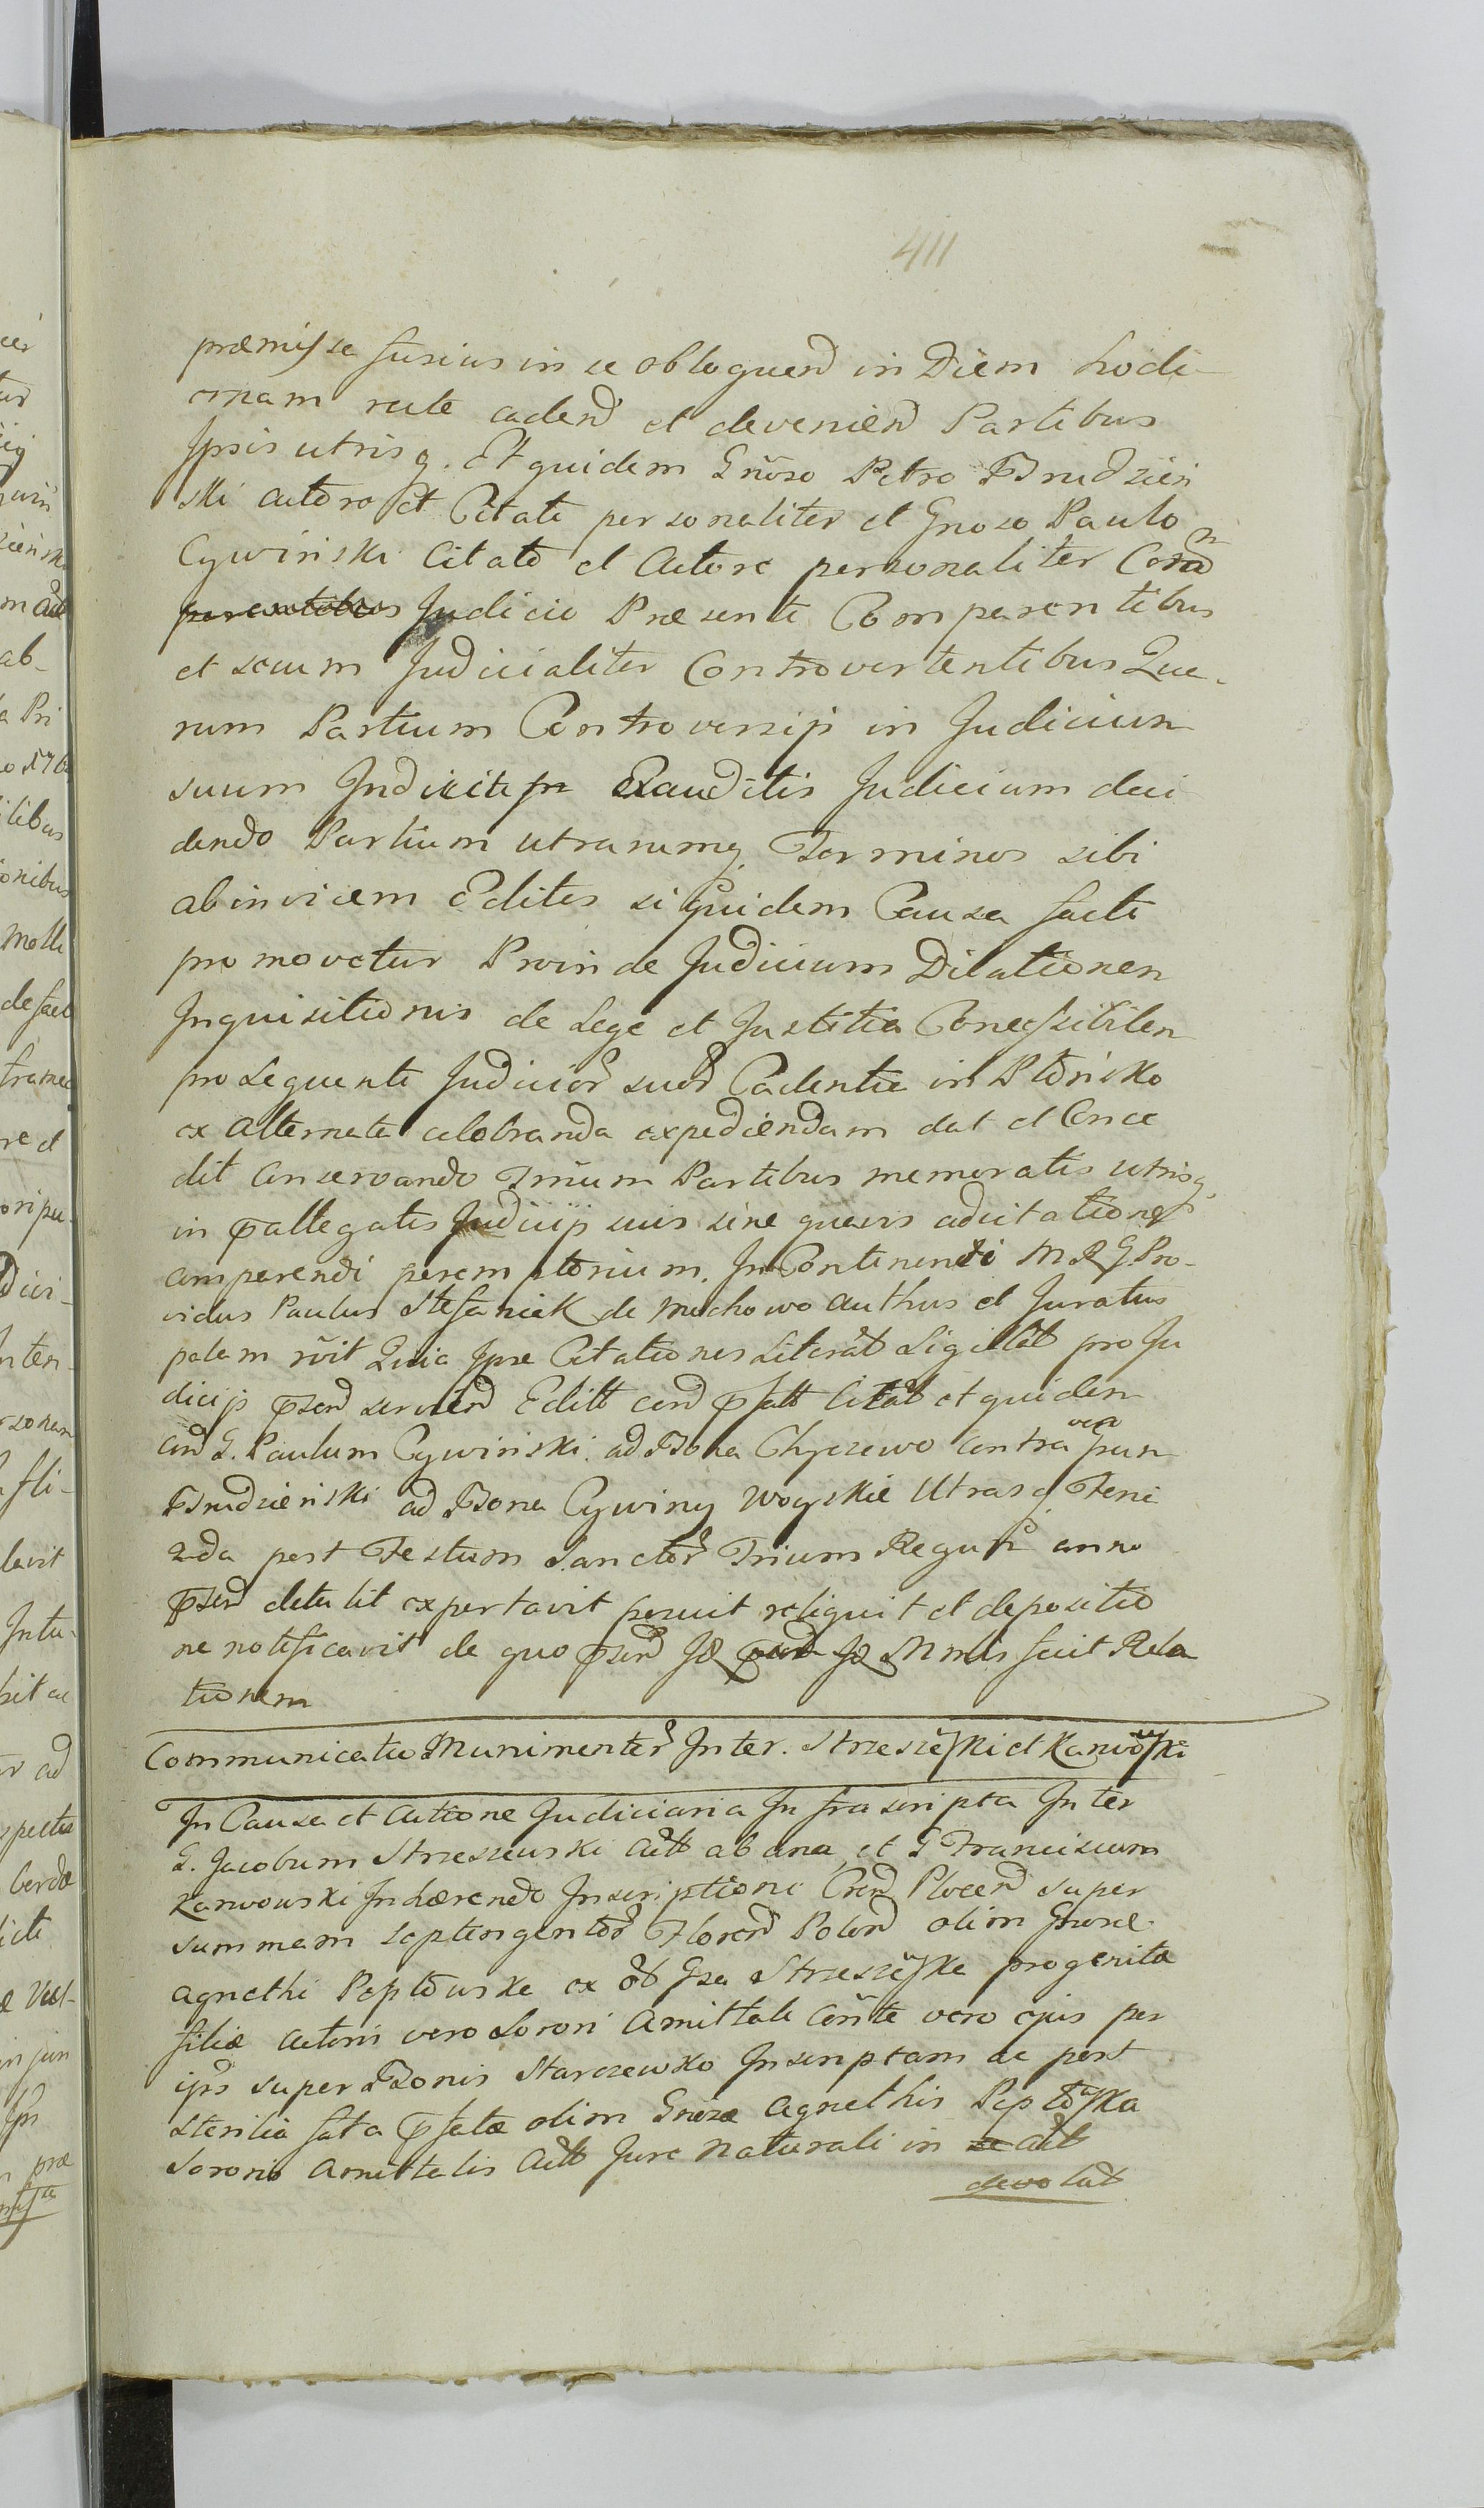 411
præmissa fusius in se obloquend in Diem hodi-
ernam rite cadend et devenien̄d Partibus
Ipsis utrisq. Et quidem Gnōso Petro Brudzień
ski Actore et Citato personaliter et Gnoso Paulo
Cywiński Citato et Actore personaliter Coram
Judicio Præsenti Comparentibus
et secum Judicialiter Controvertentibus Qua-
rum Partium Controversijs in Judicium
suum Exauditis Judicium deci
dendo Partium utrarumq. Terminos sibi
abinvicem Editos siquidem Causa facti
promovetur Proinde Judicium Dilationem
Inquisitionis de Lege et Justitia Concessibilem
pro sequenti Judicior suor Cadentia in Płońsko
ex Alternata celebranda expediendam dat et Conce
dit Conservando Tm̄um Partibus memoratis utrisq.
in pallegatis Judicijs suis sine quavis adcitatione
comparendi peremptorium. In Continenti M R G. Pro-
vidus Paulus Stefaniak de Mochowo authus et Juratus
palem rōit Quia Ipse Citationes Literat Sigillat pro Ju
dicijs psend servien̄d Editt cond psatt Citat et quidem
cond G. Paulum Cywiński ad Bona Chyczewo Contra vero
Brudzieński ad Bona Cywiny Woyskie Utrasq Feria
2da post Festum Sanctor Trium Regum anno
psend detulit exportavit posuit reliquit et depositio
ne notificavit de quo psend Jo Mnlis fecit Rela
tionem
Communicatio Munimentor Inter. Strzeszewski et Karwowski
In Causa et Actione Judiciaria Infrascripta Inter
G. Jacobum Strzeszewski Actt ab una et G Franciscum
Karwowski Inhærendo Inscriptioni Crend Plocend super
summam septingentor Floren̄ Polon̄ olim Gnosæ
Agnethi Peptowska ex ot Gsa Strzeszewska progenita
filiæ Actoris vero Sorori Amittali conte vero ejus per
ips super Bonis Starczewko Inscriptam ac post
sterilia fata psatæ olim Gnosæ Agnethis Peptowska
Sororis Amittalis Actt Jure Naturali in Actt
devolut